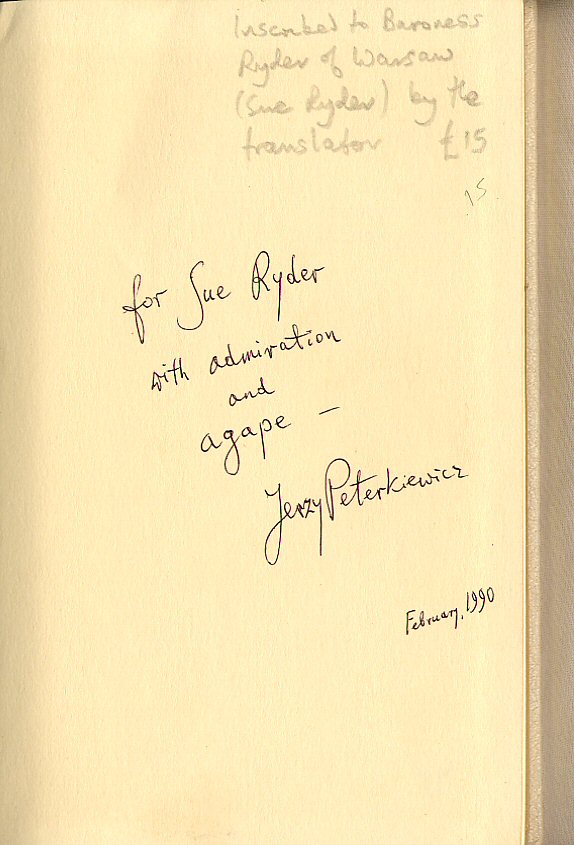 Inscribed to Baroness
Ryder of Warsaw
(Sue Ryder) by the
translator £15
15
for Sue Ryder
with admiration
and
agape –
Jerzy Peterkiewicz
February, 1990